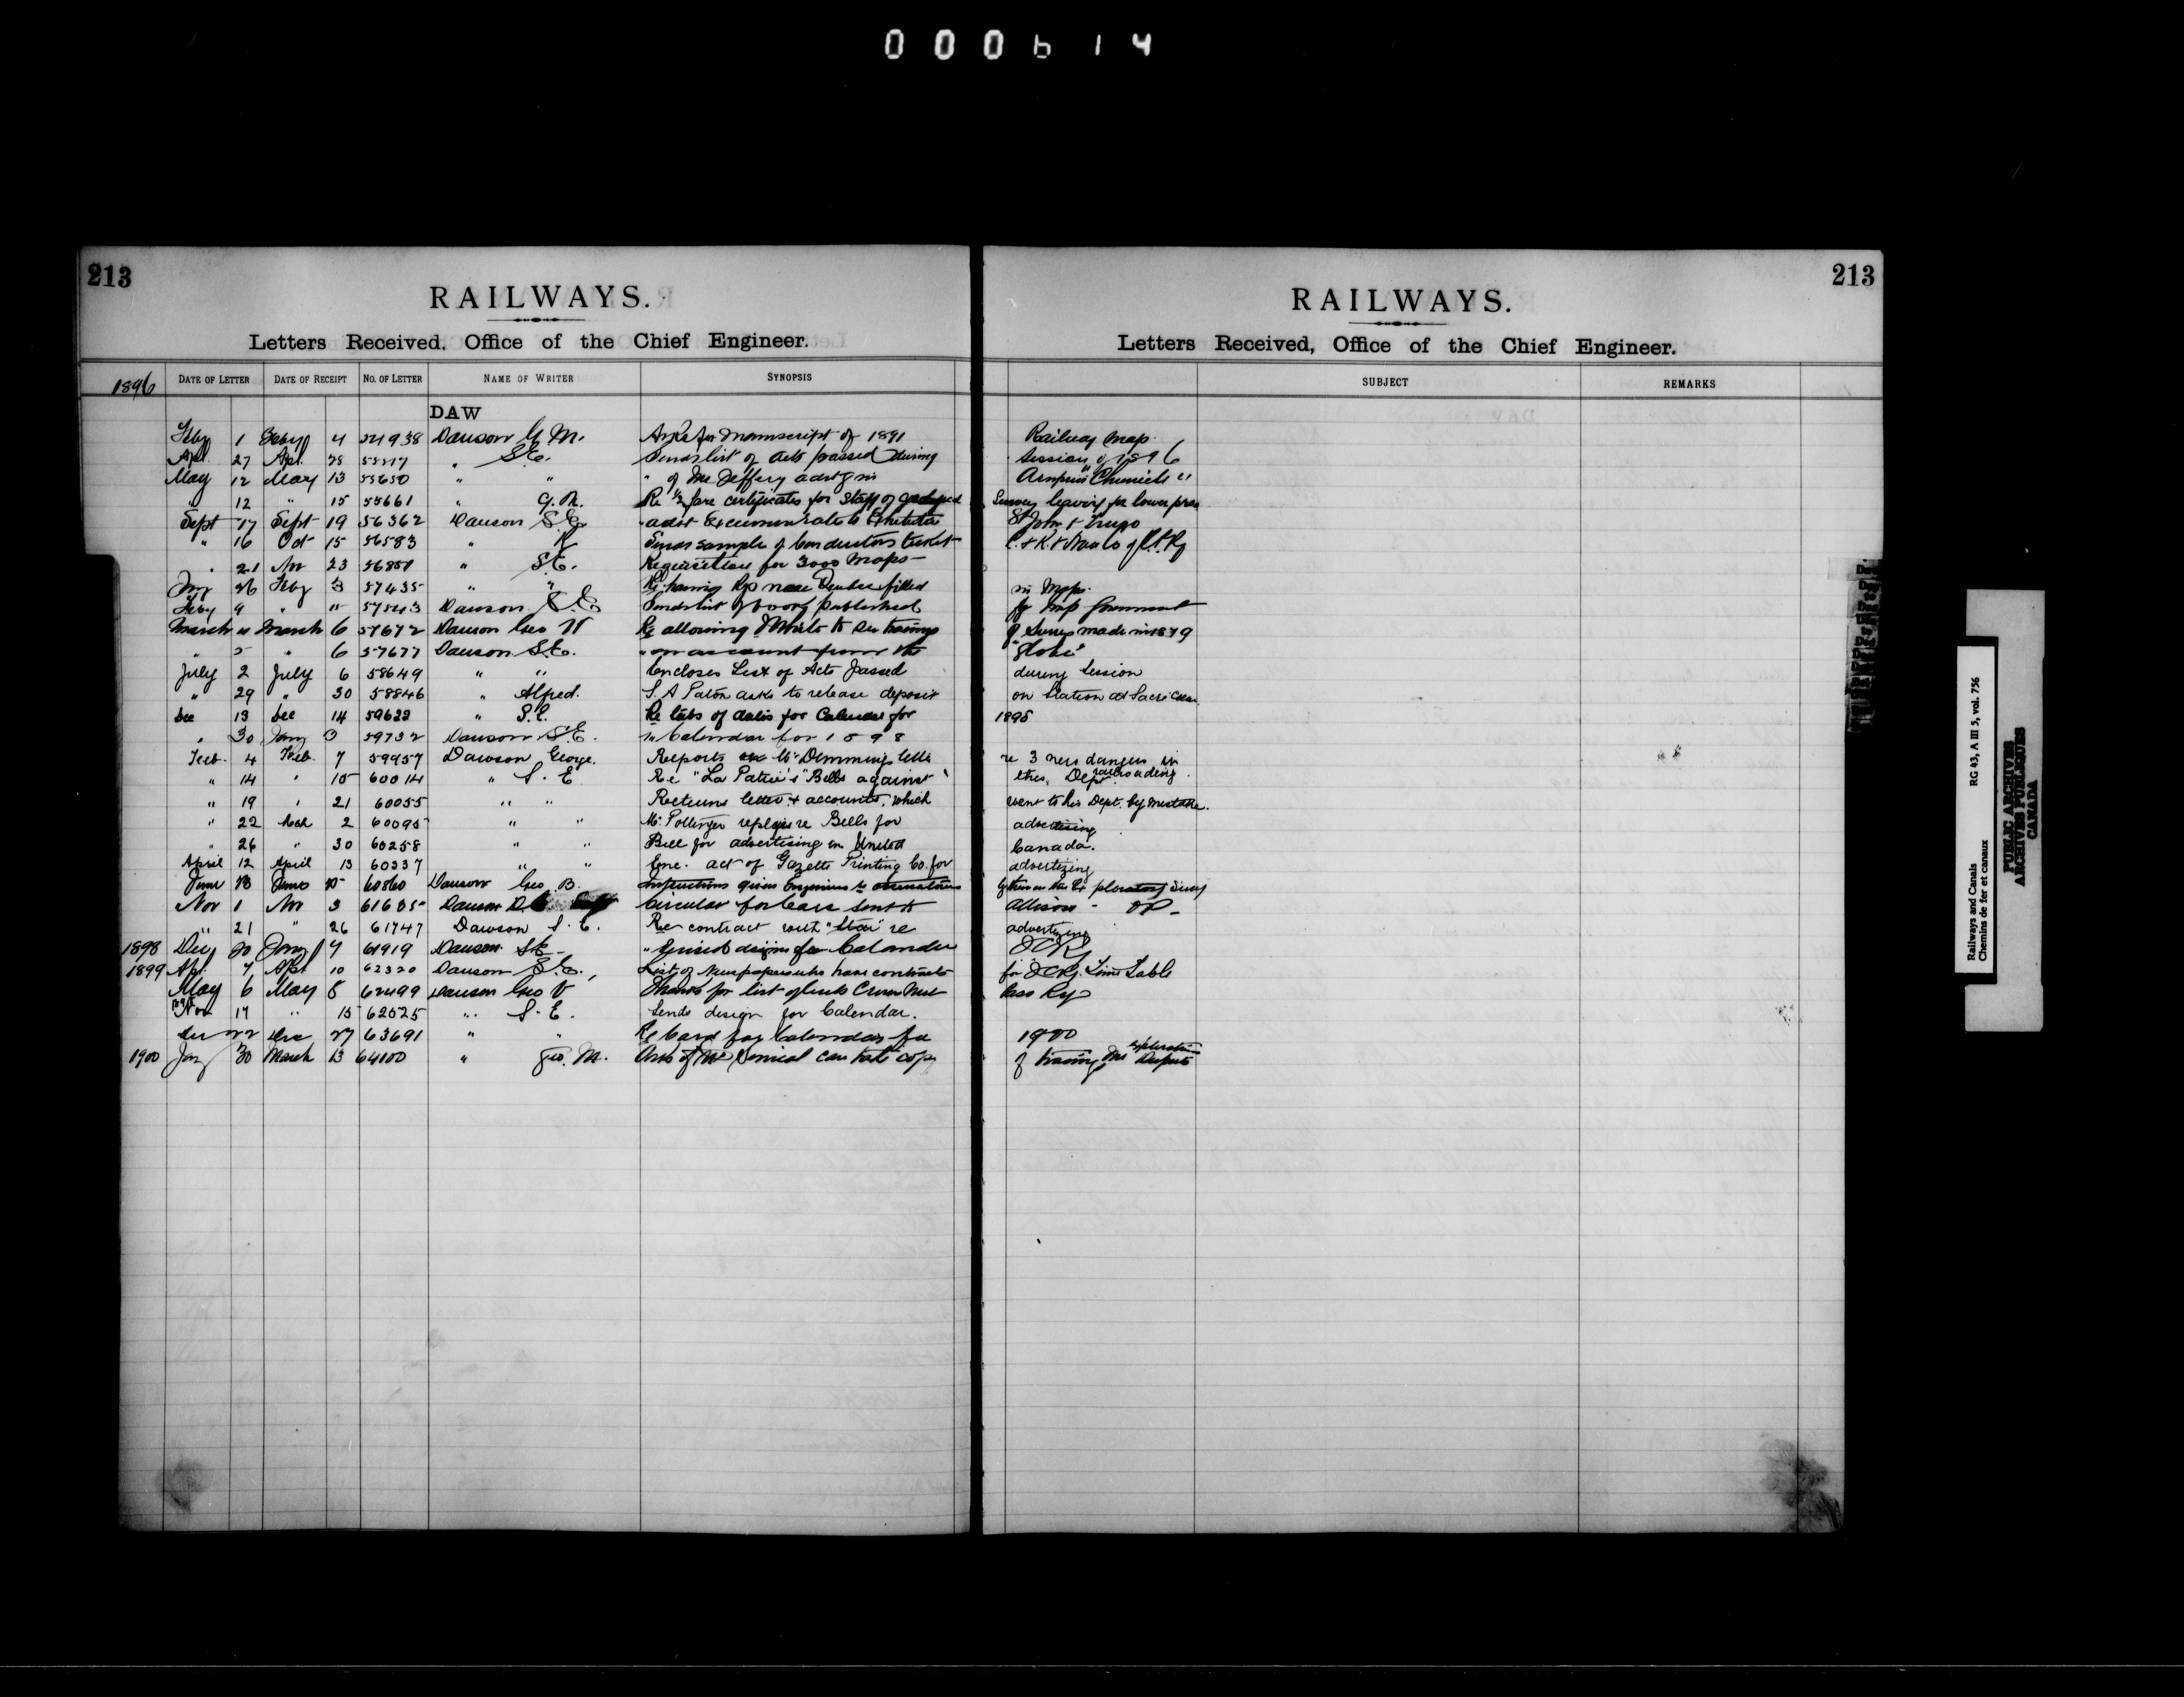 000614
213
RAILWAYS.
Letters Received. Office of the Chief Engineer.
1896 DATE OF LETTER DATE OF RECEIPT NO. OF LETTER NAME OF WRITER SYNOPSIS
DAW
Feby 1 Feby 4 54938 Dawson G. M. Asks for manuscript of 1891
Apl. 27 Apl. 28 " S.E. Sends list of acts passed during
May 12 May 13 55650 " " " of Mr Jeffery
" 12 " 15 55661 " G. M. Re ½ fare certificates for staff of
Sept 17 Sept 19 56362 Dawson S.E.
" 16 Oct 15 56583 " Sends sample of Conductors ticket
" 21 Nov 23 56801 " S.E. Requisition for 3000 Maps
Jany 26 Feby 3 57435 " " Re having Rys near Quebec filled
Feby 9 " " 57543 Dawson S.E. Sends list of books published
March March 6 57672 Dawson Geo Re allowing White to see tracings
" 5 " 6 57677 Dawson S.E. " an account from the
July 2 July 6 58649 " " Encloses List of Acts passed
" 29 " 30 58846 " Alfred. S. A Paton asks to release deposit
Dec 13 Dec 14 59623 " S.E. Re tabs of dates for Calendar for
" 30 Jany 3 59732 Dawson S.E. " Calendar for 1898
Feb. 4 Feb. 7 59957 Dawson George. Reports on Mr Demming's letter
" 14 " 15 60014 " S. E Re "La Patrie's" Bells against
" 19 " 21 60055 " " Returns letter & accounts, which
" 22 Mch 2 60095 " " Mr Pottinger replies re Bells for
" 26 " 30 60258 " " Bill for advertising in United
April 12 April 13 60337 " " Enc. act of Gazette Printing Co. for
June 13 June 15 60860 Dawson Geo B. Instructions given Engineers re observations
Nov 1 Nov 3 61635 Dawson Circular for Cars sent to
" 21 " 26 61747 Dawson S. E. Re contract with "Star" re
1898 Dec 30 Jany 4 61919 Dawson S.E. " Revised designs for Calander
1899 Apl. 7 Apl 10 62320 Dawson S.E. List of Newspapers who have contracts
May 6 May 8 62499 Dawson Geo Thanks for list of levels Crows Nest
Nov 14 " 15 62525 " S. E. Sends design for Calendar.
Dec 22 Dec 27 63691 " " Re Card for Calendar for
1900 Jany 30 March 13 64100 " Geo. M. Asks if Mr can take copy
213
RAILWAYS.
Letters Received, Office of the Chief Engineer.
SUBJECT REMARKS
Railway map.
Session of 1896
Arnprior "Chronicle"
Survey leaving for lower prov
St John & Truro
in Maps.
by Imp Government
of Survey made in 1879
"Globe"
during Session
on Station at
1898
re 3 new dangers in railroading
this Dept.
went to his Dept. by mistake.
advertising
Canada.
advertizing
Allison -
advertizing
ICRy
for ICRy. Time Table
Pass Ry
1900
of tracing exploration
Railways and Canals RG 43, A III 5, vol. 756
Chemins de fer et canaux
PUBLIC ARCHIVES
ARCHIVES PUBLIQUES
CANADA